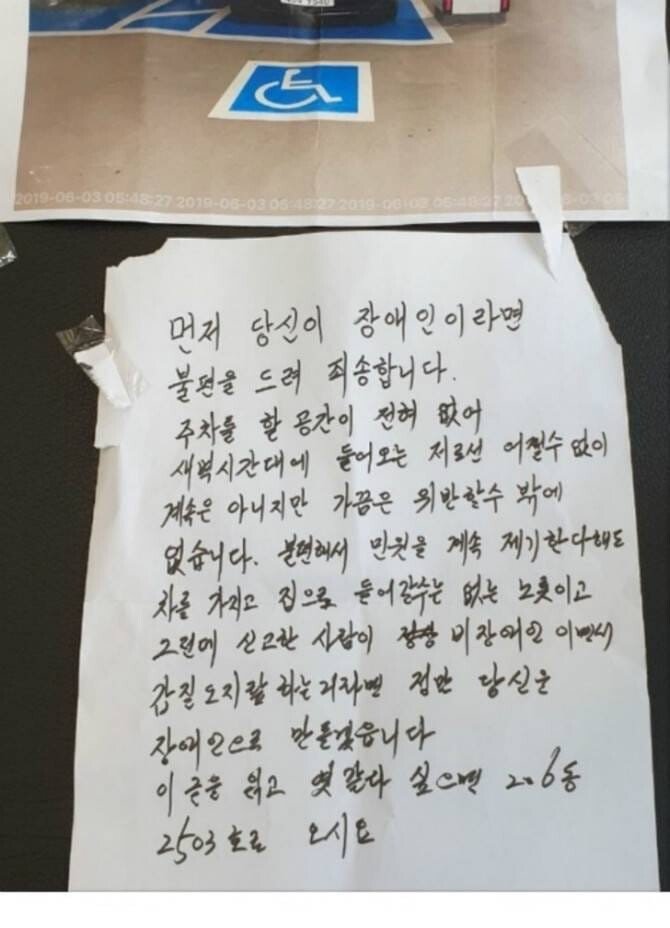 2019-06-03 05:48:27 2019-06-03 05:48:27 2019-06-03 05:48:27 20
먼저 당신이 장애인이라면
불편을 드려 죄송합니다.
주차를 할 공간이 전혀 없어
새벽시간대에 들어오는 저로선 어쩔수 없이
계속은 아니지만 가끔은 위반할수 밖에
없습니다. 불편해서 민원을 계속 제기한다해도
차를 가지고 집으로 들어갈수는 없는 노릇이고
그런데 신고한 사람이 비장애인 이면서
갑질 오지랖 하는거라면 정말 당신은
장애인으로 만들겠습니다
이 글을 읽고 엿 같다 싶으면 206동
2503호로 오시요